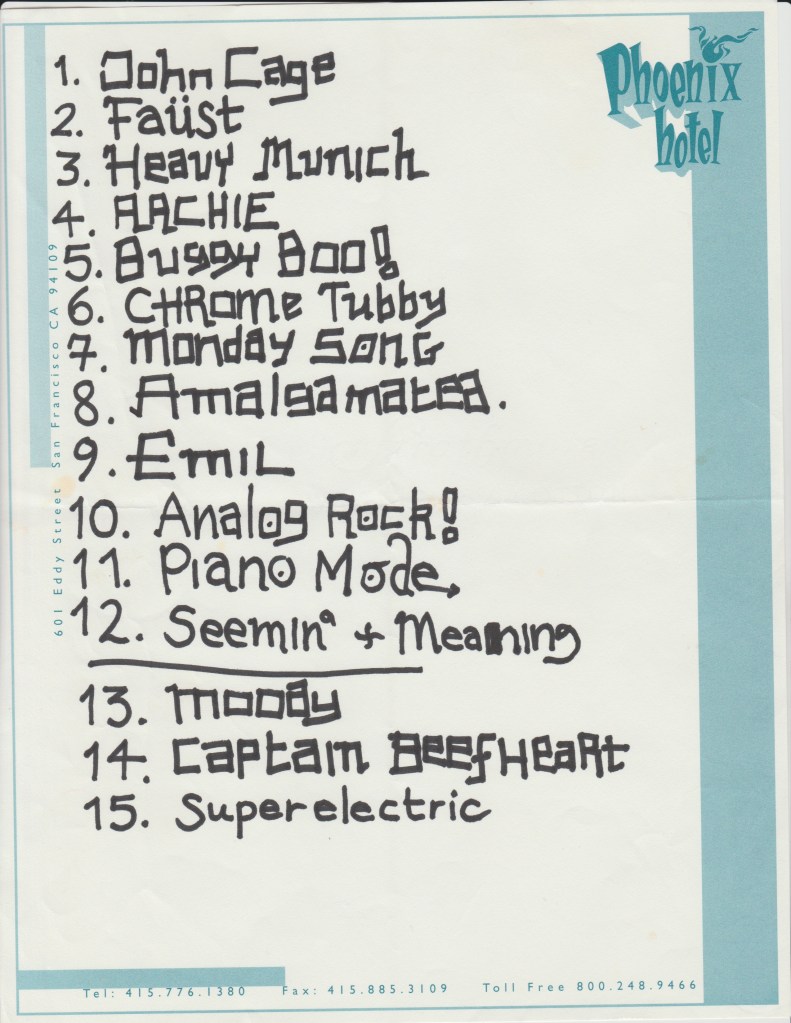 Phoenix
hotel
1. John Cage
2. Faüst
3. Heavy Munich
4. AACHIE
5. Buggy Boo!
6. CHRome Tubby
7. Monday SonG
8. Amalgamated.
9. EmiL
10. Analog Rock!
11. Piano Mode,
12. Seemin° + Meaning
13. Moody
14. Captain BeefHeaRt
15. Superelectric
601 Eddy Street San Francisco CA 94109
Tel: 415.776.1380 Fax: 415.885.3109 Toll Free 800.248.9466